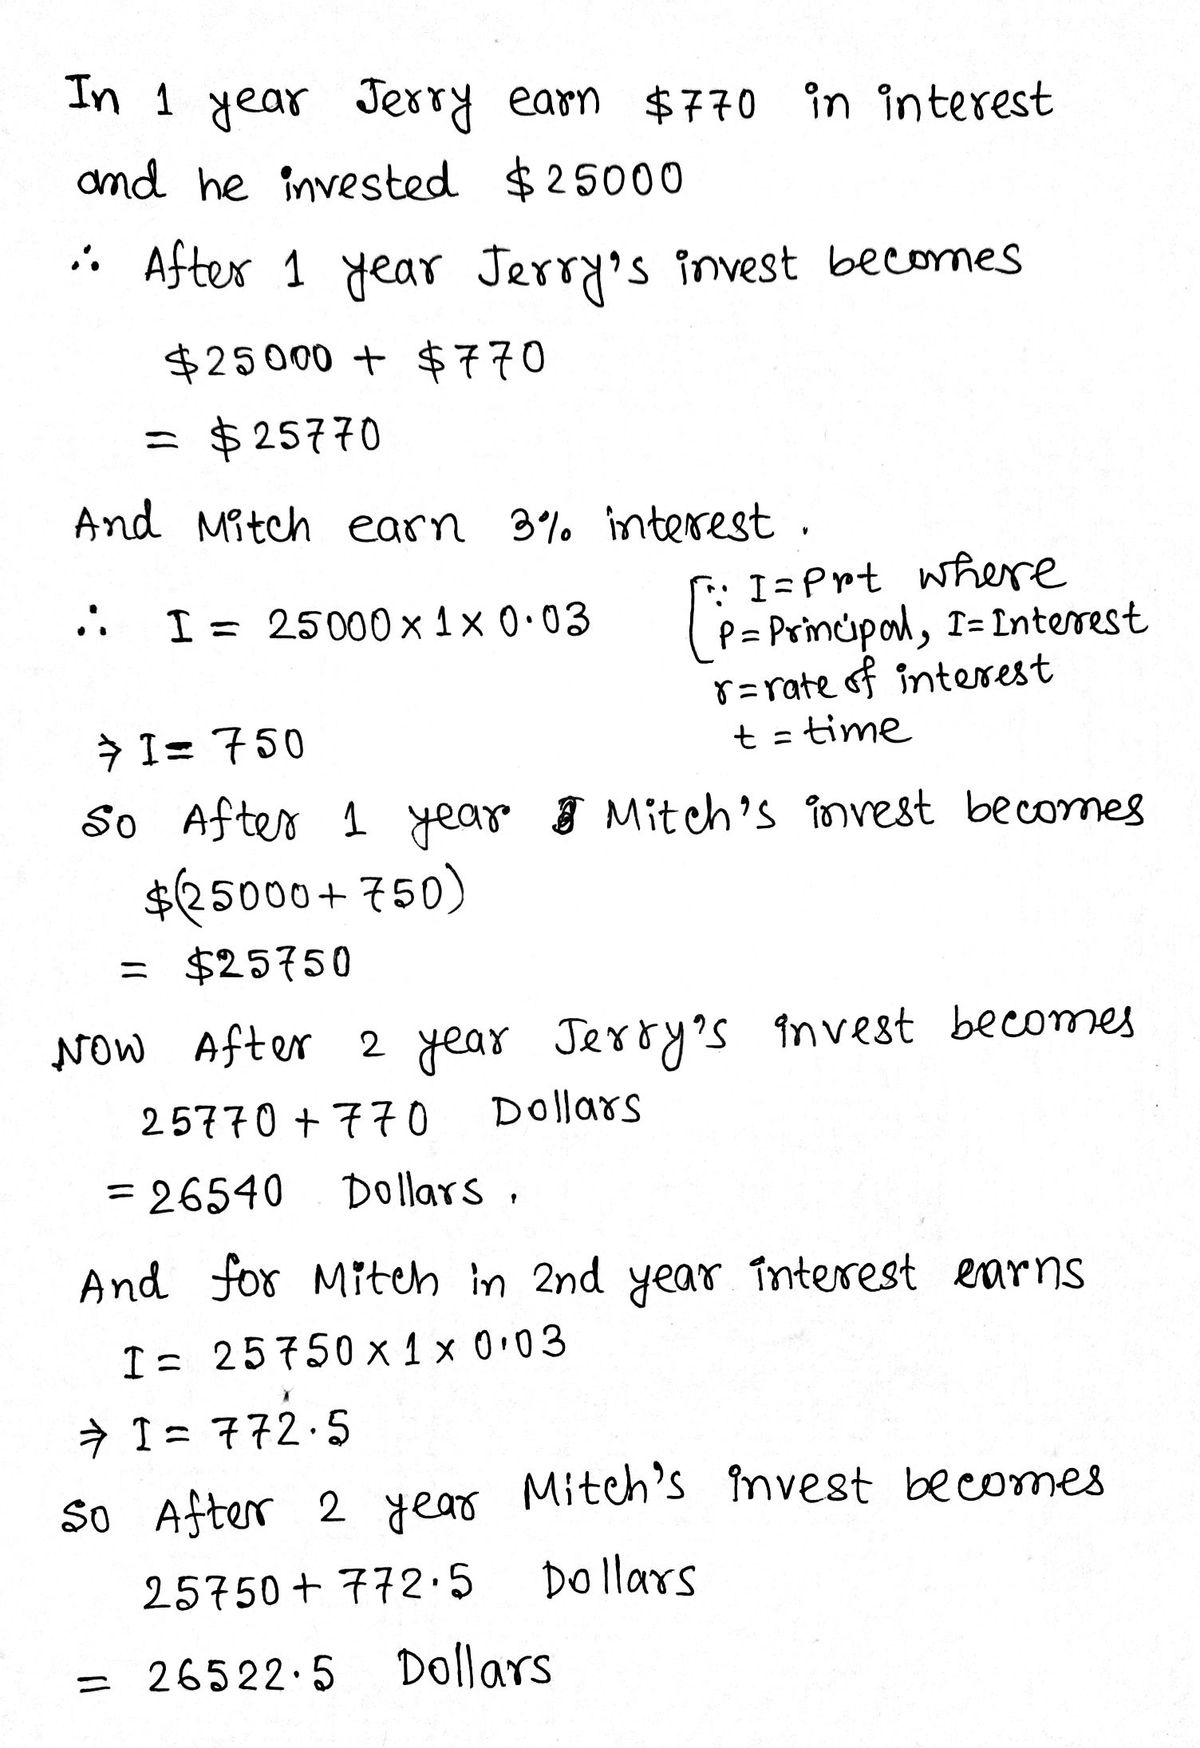 In 1 year Jerry earn $770 in interest
and he invested $25000
∴ After 1 year Jerry's invest becomes
$25000 + $770
= $25770
And Mitch earn 3% interest.
∴ I = 25000 × 1 × 0.03
[∵ I = Prt where
P = Principal, I = Interest
r = rate of interest
t = time
⇒ I = 750
So After 1 year Mitch's invest becomes
$(25000 + 750)
= $25750
Now After 2 year Jerry's invest becomes
25770 + 770 Dollars
= 26540 Dollars.
And for Mitch in 2nd year interest earns
I = 25750 × 1 × 0.03
⇒ I = 772.5
So After 2 year Mitch's invest becomes
25750 + 772.5 Dollars
= 26522.5 Dollars